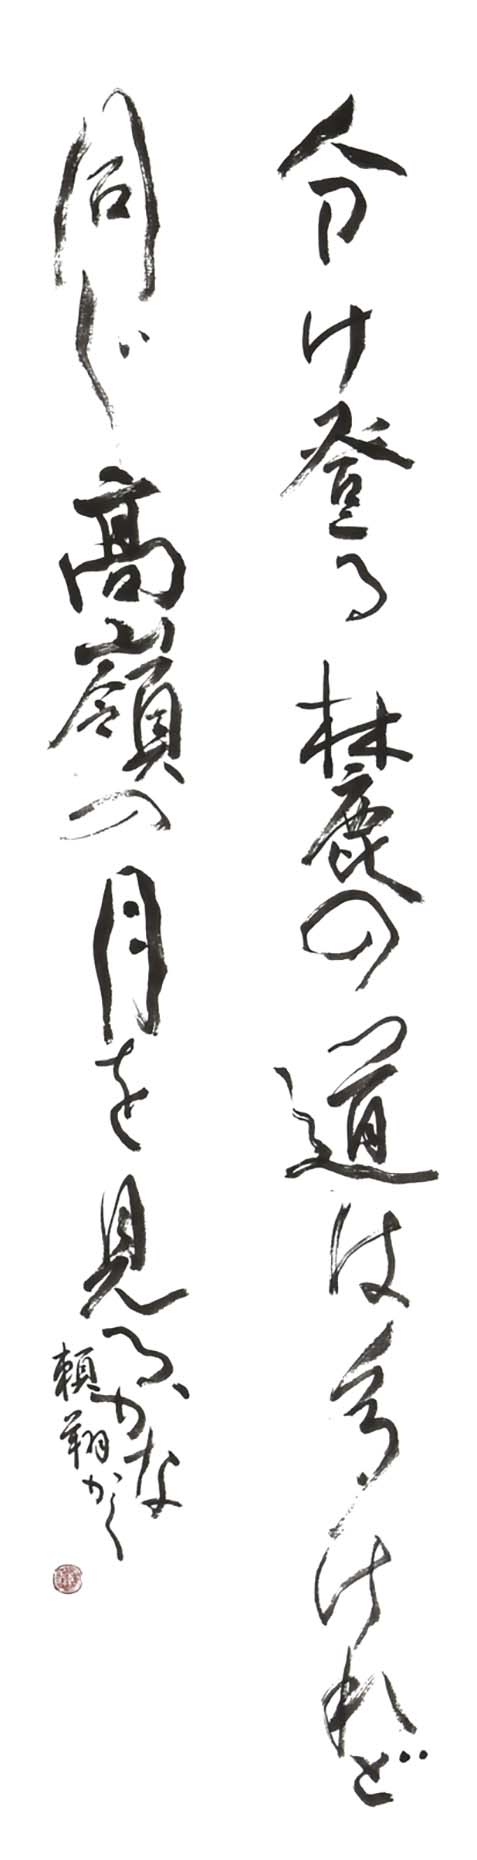 分け登る麓の道は多けれど
同じ高嶺の月を見るかな
頼翔かく